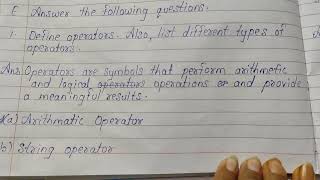 E Answer the following questions.
1. Define operators. Also, list different types of
operators.
Ans: Operators are symbols that perform arithmetic
and logical operators operations or and provide
a meaningful results.
a) Arithmatic Operator
b) String operator